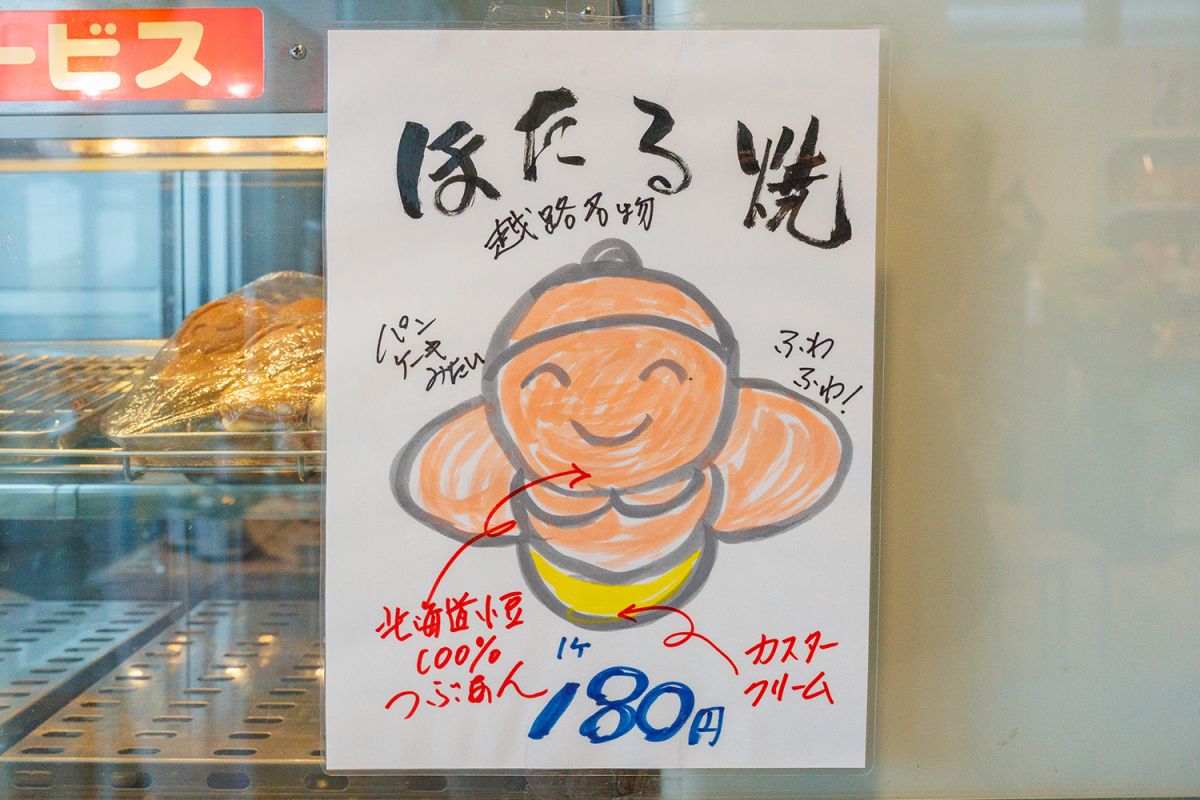 ービス
ほたる焼
越路名物
パン
ケーキ
みたい
ふわ
ふわ!
北海道小豆
100%
つぶあん
カスター
クリーム
1ケ
180円